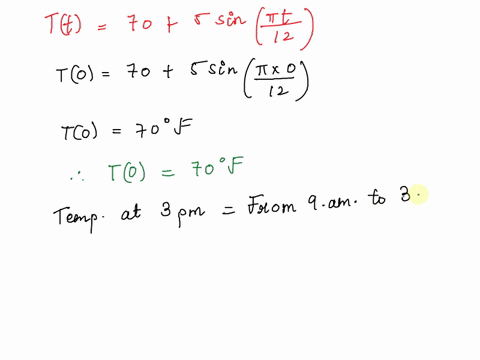 T(t) = 70 + 5 sin (πt/12)
T(0) = 70 + 5 sin (π×0/12)
T(0) = 70°F
∴ T(0) = 70°F
Temp. at 3 pm = From 9.am. to 3.